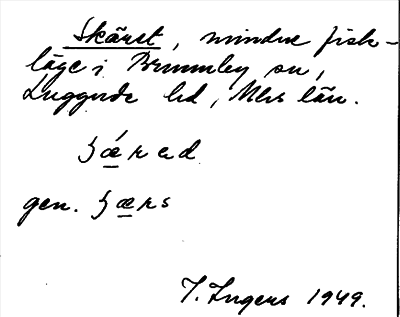 Skäret, mindre fisk-
läge i Brunnby sn,
Luggude hd, Mlhs län.
ʒǽrad
gen. ʒærs
J. Ingers 1949.